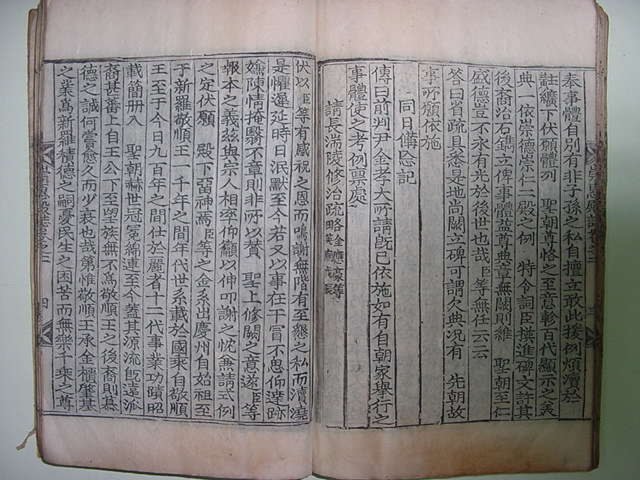 奉事體自別有非子孫之私自擅立敢此援例煩瀆於
黈纊下伏願體列 聖朝尊恪之至意軫百代顯示之義
典一依崇德崇仁二殿之例 特令詞臣撰進碑文許其
後裔治石鐫立俾事體益尊典章無闕則維 聖朝至仁
戚德豈不永有光於後世也哉臣等無任云云
答曰省疏具悉是地尚闕立碑可謂久典況有 先朝故
事所願依施
同日備忘記
傳曰前判尹金老大所請旣已依施如有自朝家擧行之
事聽使之考例禀處
請長湍陵修治疏略
伏以臣等有感祝之恩而鳴謝無階有至懇之私而瀆澆
是懼遲延時日泯默至今若又以事在干冒不思仰達跡
嫌陳情掩翳不章則非所以賛 聖上修闕之意遂臣等
報本之義玆與宗人相率仰籲以伸叩謝之忱無請式例
之定伏願 殿下留神焉臣等之金系出慶州自始祖至
于新羅敬順王一千年之間年代世系載於國乘自敬順
王至于今日九百年之間仕於麗者十二代事業功蹟昭
載簡冊入 聖朝赫世冠冕綿連至今蓋其源流旣遠派
裔甚蕃上自王公下至塱族無不爲敬順王之後裔則慕
德之誠何嘗愈久而少衰也哉第惟敬順王承金櫃肇基
之業爲新羅積德之嗣憂民生之困苦而無樂千乘之尊
四